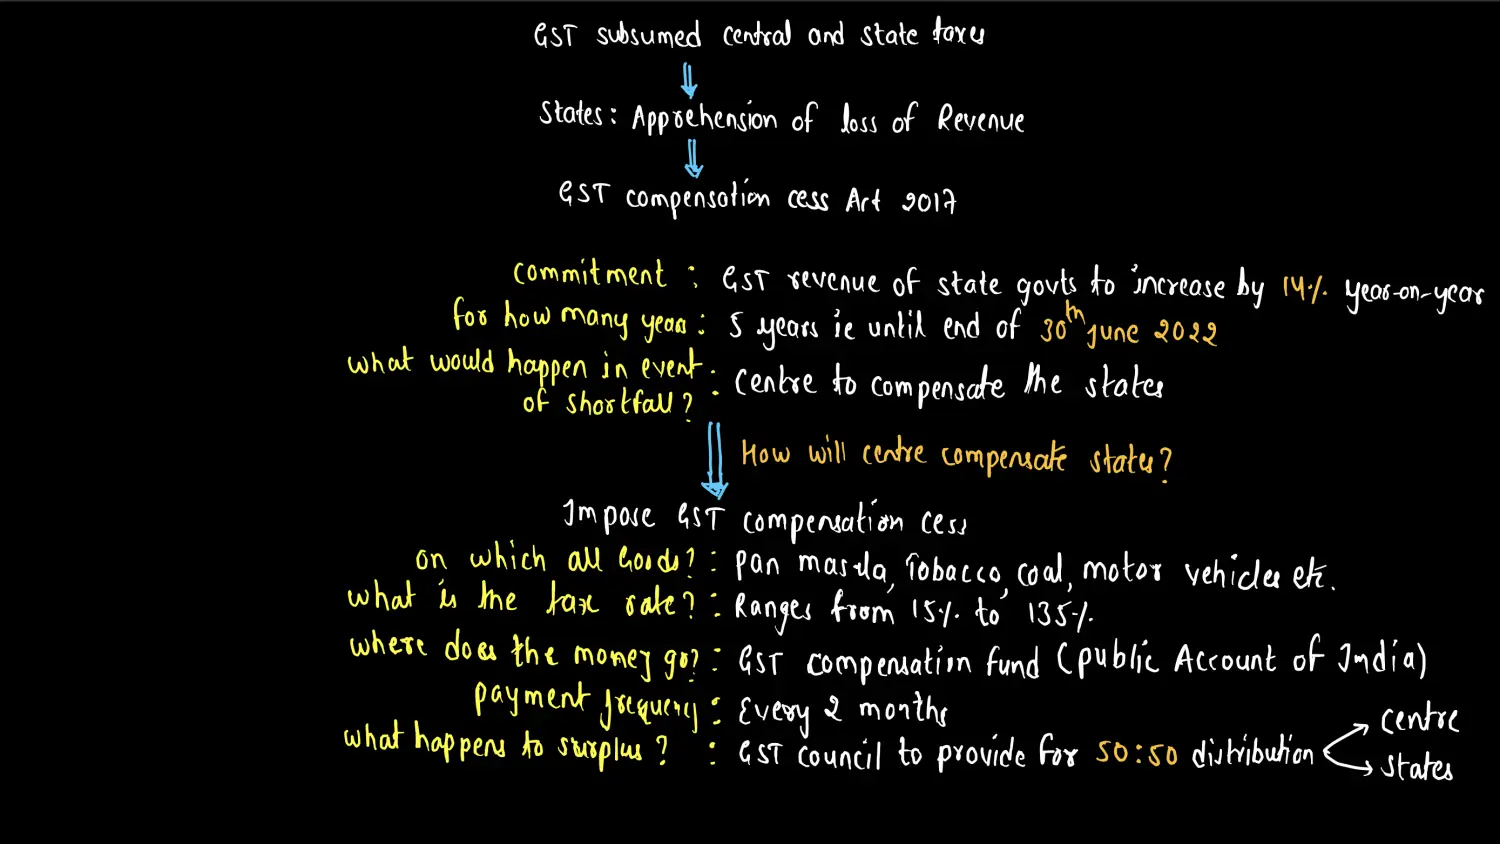 GST subsumed central and state taxes
States: Apprehension of loss of Revenue
GST compensation cess Act 2017
commitment : GST revenue of state govts to increase by 14% year-on-year
for how many years : 5 years ie until end of 30th june 2022
what would happen in event of shortfall? : Centre to compensate the states
How will centre compensate states?
Impose GST compensation cess
on which all Goods? : Pan masala, Tobacco, coal, motor vehicles etc.
what is the tax rate? : Ranges from 15% to 135%
where does the money go? : GST compensation fund (public Account of India)
payment frequency : Every 2 months
what happens to surplus? : GST council to provide for 50:50 distribution
centre
states